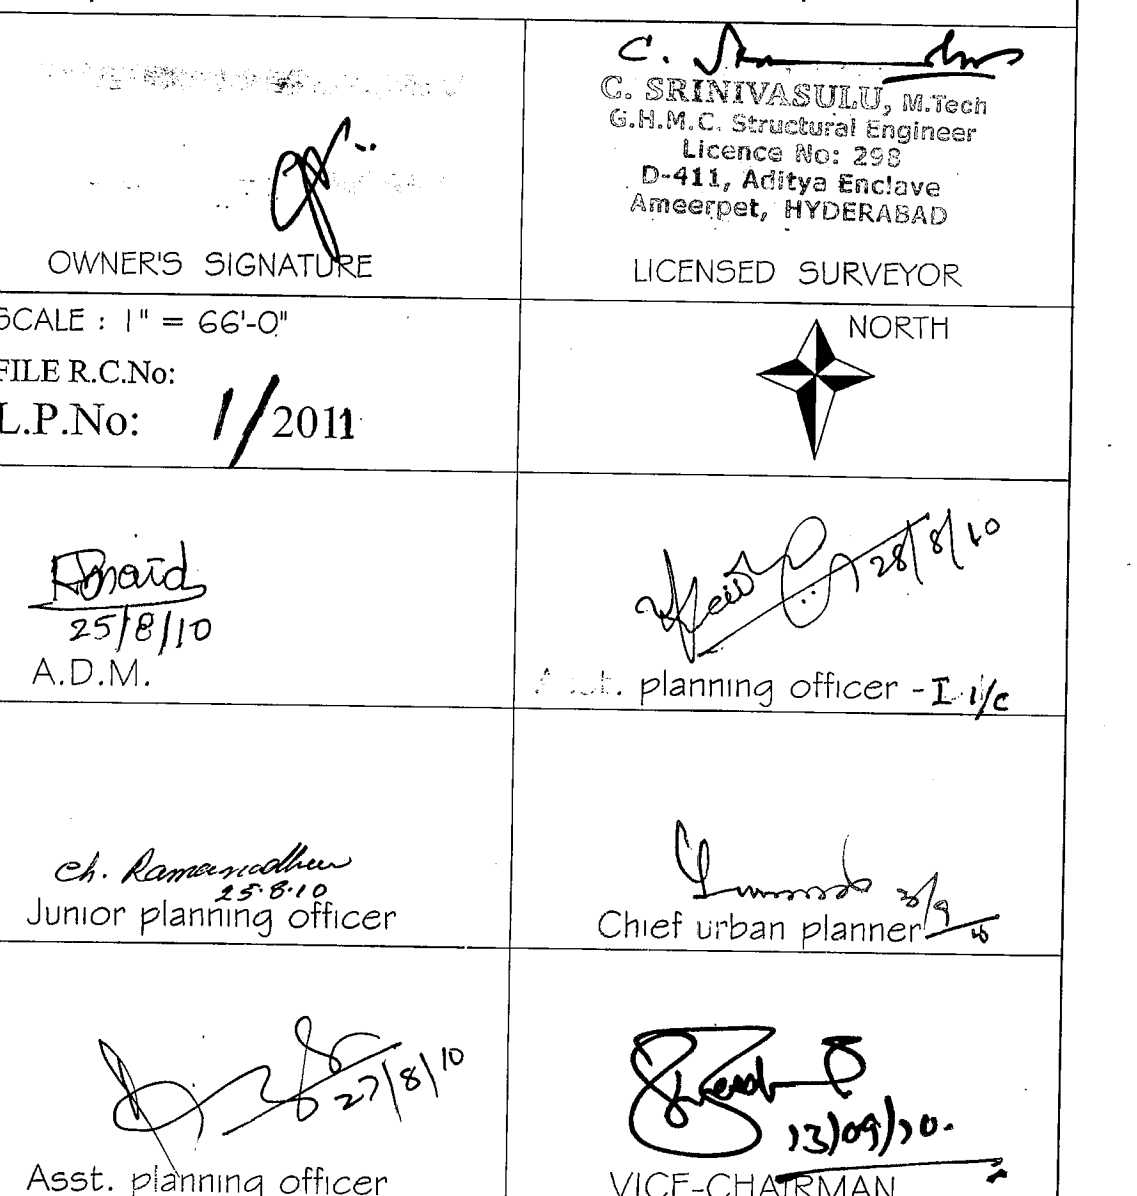 C.
C. SRINIVASULU, M.Tech
G.H.M.C. Structural Engineer
Licence No: 298
D-411, Aditya Enclave
Ameerpet, HYDERABAD
OWNER'S SIGNATURE
LICENSED SURVEYOR
SCALE : 1" = 66'-0"
FILE R.C.No:
L.P.No: 1/2011
NORTH
25/8/10
A.D.M.
28/8/10
Asst. planning officer - I i/c
Ch.
25.8.10
Junior planning officer
Chief urban planner
27/8/10
Asst. planning officer
13/09/10.
VICE-CHAIRMAN